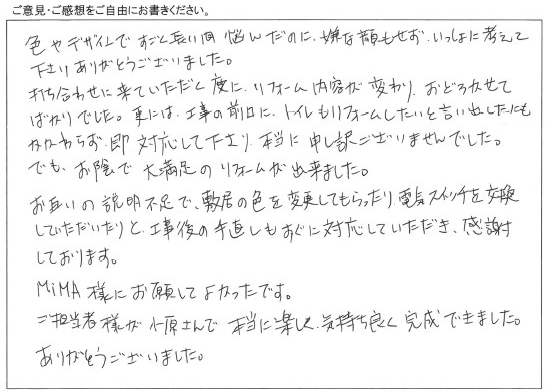 ご意見・ご感想をご自由にお書きください。
色やデザインですごく長い間 悩んだのに、嫌な顔もせず、いっしょに考えて
下さりありがとうございました。
打ち合わせに来ていただく度に、リフォーム内容が変わり、おどろかせて
ばかりでした。更には、工事の前日に、トイレもリフォームしたいと言い出したにも
かかわらず、即対応して下さり、本当に申し訳ございませんでした。
でも、お陰で大満足のリフォームが出来ました。
お互いの説明不足で、敷居の色を変更してもらったり、電気スイッチを交換
していただいたりと、工事後の手直しもすぐに対応していただき、感謝
しております。
MIMA様にお願してよかったです。
ご担当者様が小原さんで本当に楽しく、気持ち良く完成できました。
ありがとうございました。